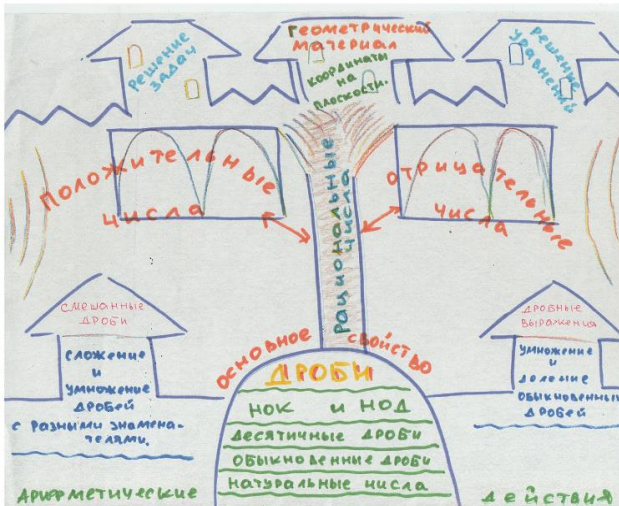 Решение
задач
Геометрический
материал
координаты
на
плоскости.
Решение
уравнений
Положительные
числа
Рациональные
числа
Отрицательные
числа
Смешанные
дроби
Сложение
и
умножение
дробей
с разными знамена-
телями.
Дробные
выражения
Умножение
и
деление
обыкновенных
дробей
Основное свойство
ДРОБИ
НОК и НОД
Десятичные дроби
Обыкновенные дроби
Натуральные числа
Арифметические действия